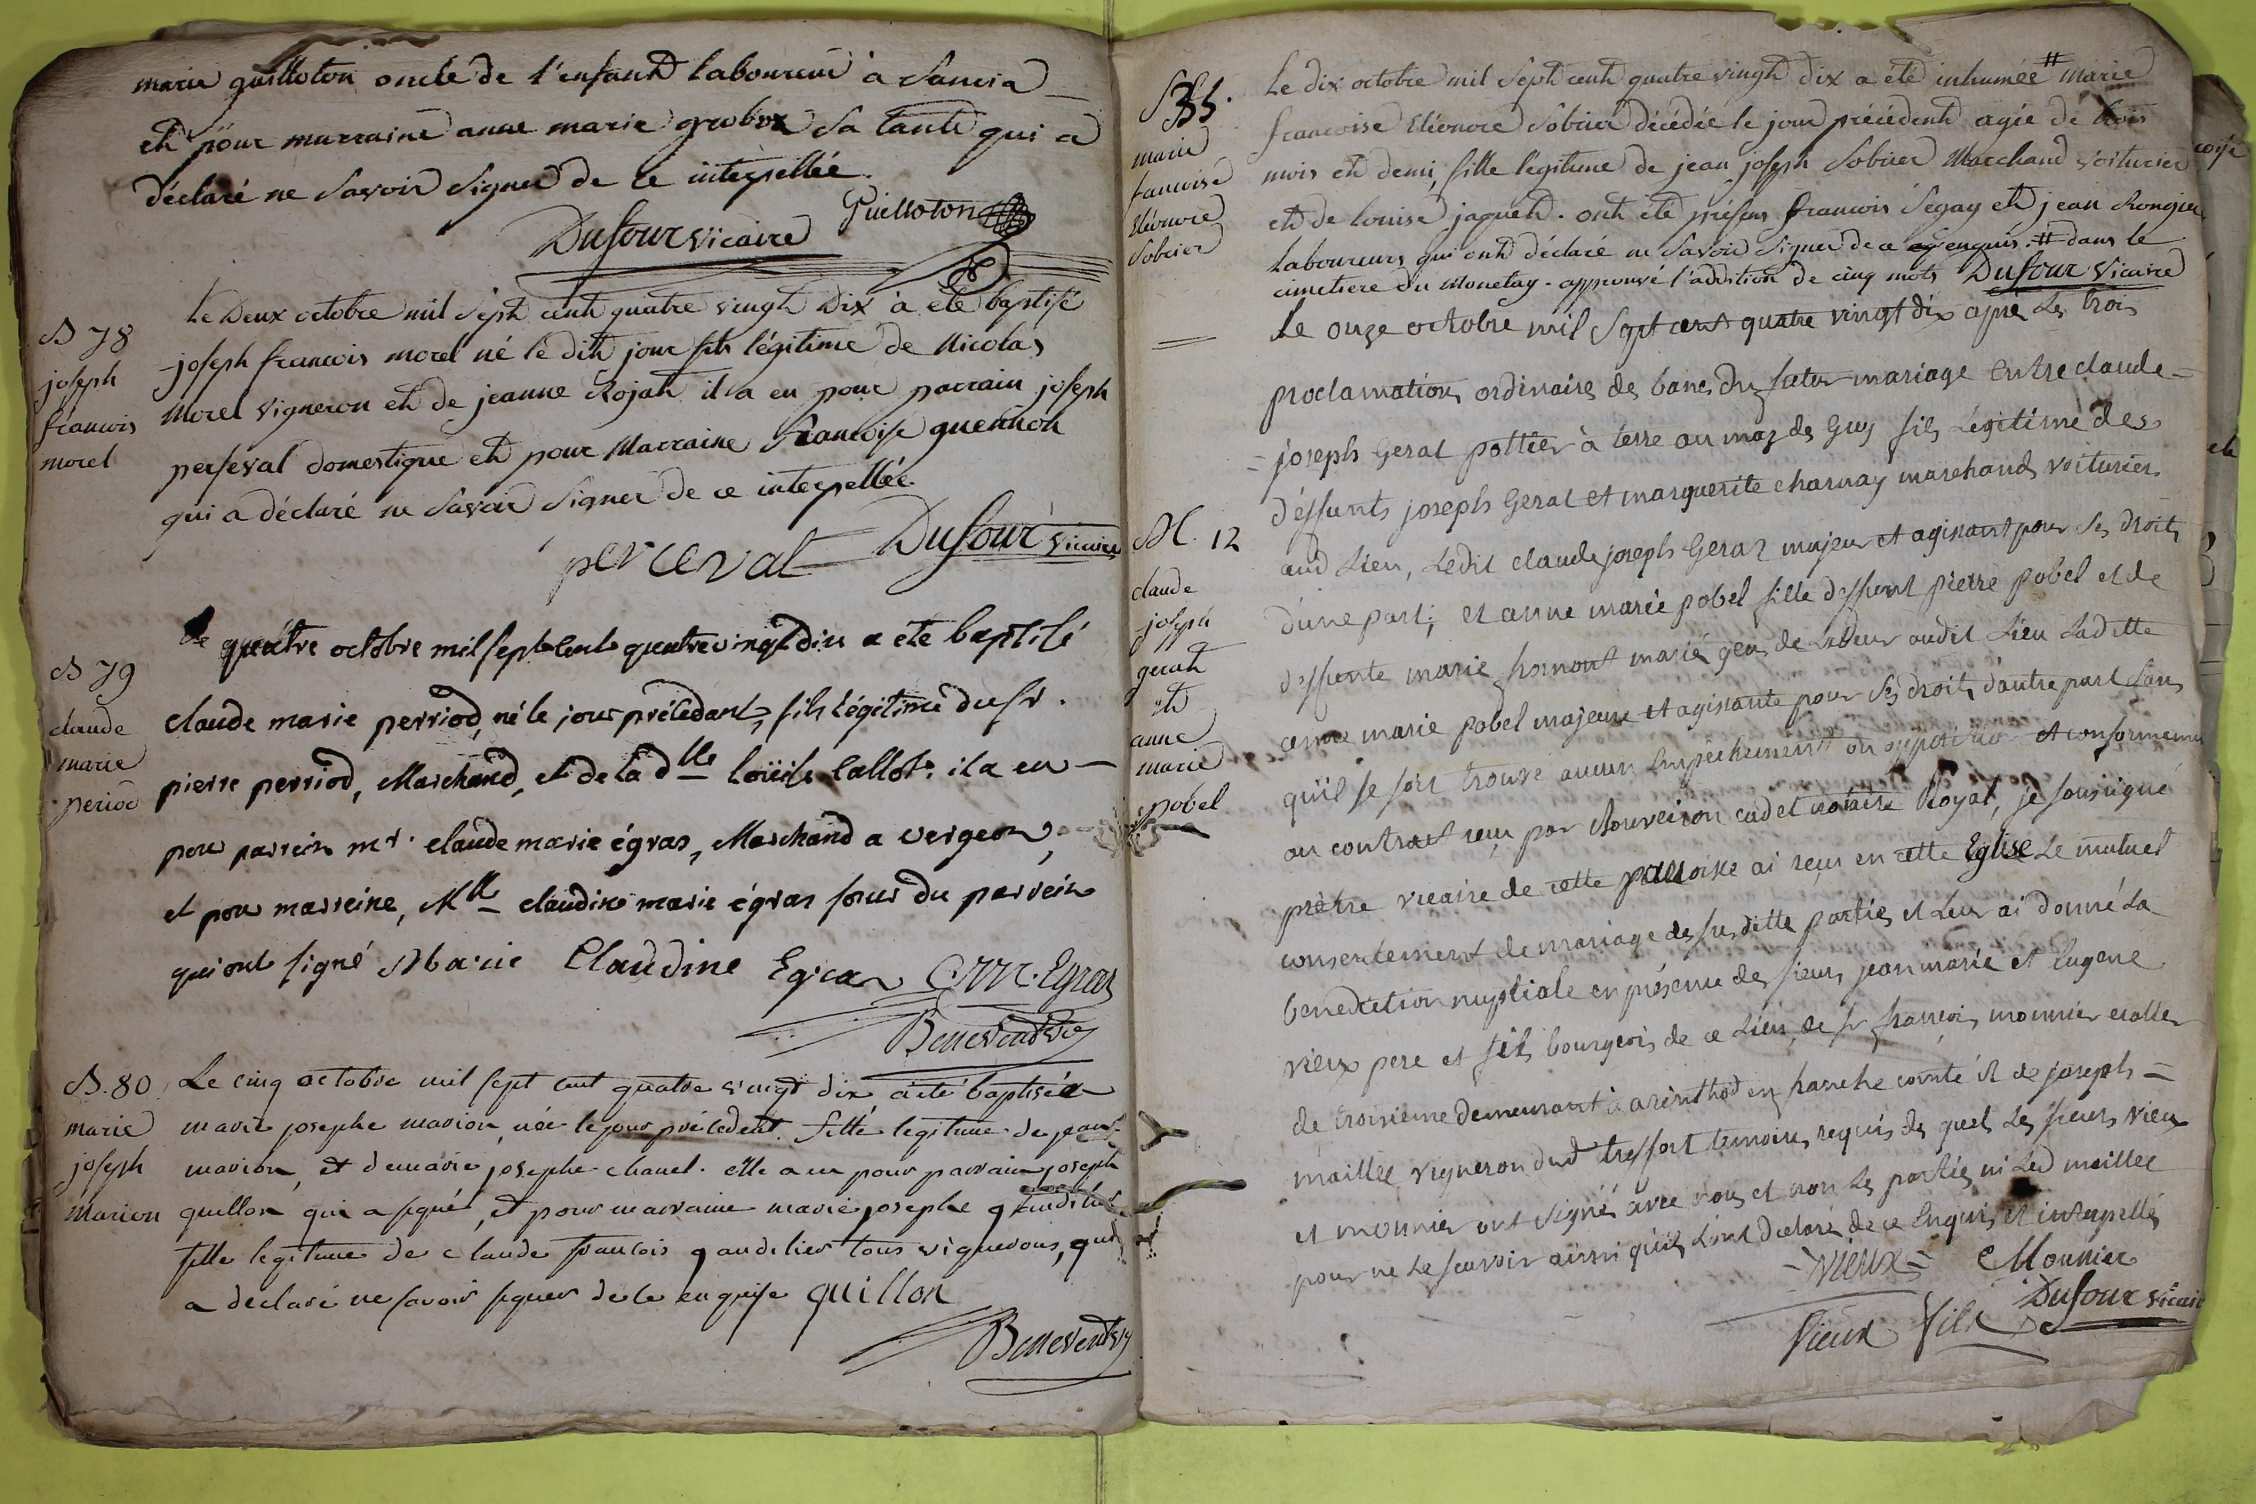 marie guilloton oncle de l'enfant laboureur a Sancia
et pour marraine anne marie grobox sa tante qui a
déclaré ne savoir signer de ce interpellée.
Dufour vicaire Guilloton
B 78
joseph
francois
morel
Le Deux octobre mil sept cent quatre vingt Dix a été baptisé
joseph francois morel né le dit jour fils légitime de Nicolas
Morel vigneron et de jeanne Rojat il a eu pour parrain joseph
perséval domestique et pour Marraine francoise guennon
qui a déclaré ne savoir signer de ce interpellée.
perceval Dufour vicaire
B 79
claude
marie
period
Le quattre octobre mil sept cent quatrevingt dix a été baptisé
claude marie perriod, né le jour précédant, fils légitime du sr.
pierre perriod, Marchand, et de la dlle loüise callot. il a eu
pour parrein mr. claude marie égras, Marchand a vergeon,
et pour marreine, Mlle claudine marie égras sœur du parrein
qui ont signé Marie Claudine Egras C. M. Egraz
Benevent
B. 80
marie
joseph
marion
Le cinq octobre mil sept cent quatre vingt dix a été baptisée
marie josephe marion, née le jour précédent. fille legitime de jean
marion, et de marie josephe chanel. elle a eu pour parrain joseph
quillon qui a signé, et pour marraine marie josephe gaudilier
fille legitime de claude francois gaudilier tous vignerons, qui
a declaré ne savoir signer de ce enquise quillon
Benevent
S 35.
marie
francoise
Eléonore
Sobrier
Le dix octobre mil sept cent quatre vingt dix a été inhumée # Marie
francoise Eléonore Sobrier décédée le jour précédent agée de trois
mois et demi, fille legitime de jean joseph Sobrier Marchand voiturier
et de louise jaquet. ont été présens francois Segay et jean Rongier
laboureurs qui ont déclaré ne savoir signer de ce enquis. # dans le
cimetiere du Monetay. approuvé l'addition de cinq mots Dufour vicaire
M. 12
claude
joseph
gerat
et
anne
marie
pobel
Le onze octobre mil sept cent quatre vingt dix aprè les trois
proclamations ordinaires des bancs du futur mariage entre claude
joseph Gerat pottier à terre au maz des Guy fils légitime des
déffunts joseph Gerat et marguerite charnay marchands voituriers
aud lieu, Ledit claude joseph Gerat majeur et agissant pour ses droits
d'une part; et anne marie pobel fille deffunt pierre pobel et de
deffunte marie hornont mariés gens de Labeur audit Lieu Ladite
anne marie pobel majeure et agissante pour ses droits d'autre part sans
qu'il se soit trouvé aucun Empechement ou opposition et conformement
au contrat reçu par Rouveiron cadet notaire Royal, je soussigné
prêtre vicaire de cette paroisse ai reçu en cette Eglise Le mutuel
consentement de mariage des susdittes parties et Leur ai donné La
benediction nuptiale en présence des sieurs jean marie et Eugene
vieux pere et fils bourgeois de ce Lieu, de sr françois mounier ecollier
de troisieme demeurant à arinthod en franche comté et de joseph
maillet vigneron dud treffort temoins requis des quels Les sieurs vieux
et mounier ont signés avec nous et non Les parties ni Led maillet
pour ne Le scavoir ainsi qu'ils L'ont declaré de ce Enquis et interpellés
vieux Mounier
Vieux fils Dufour vicaire